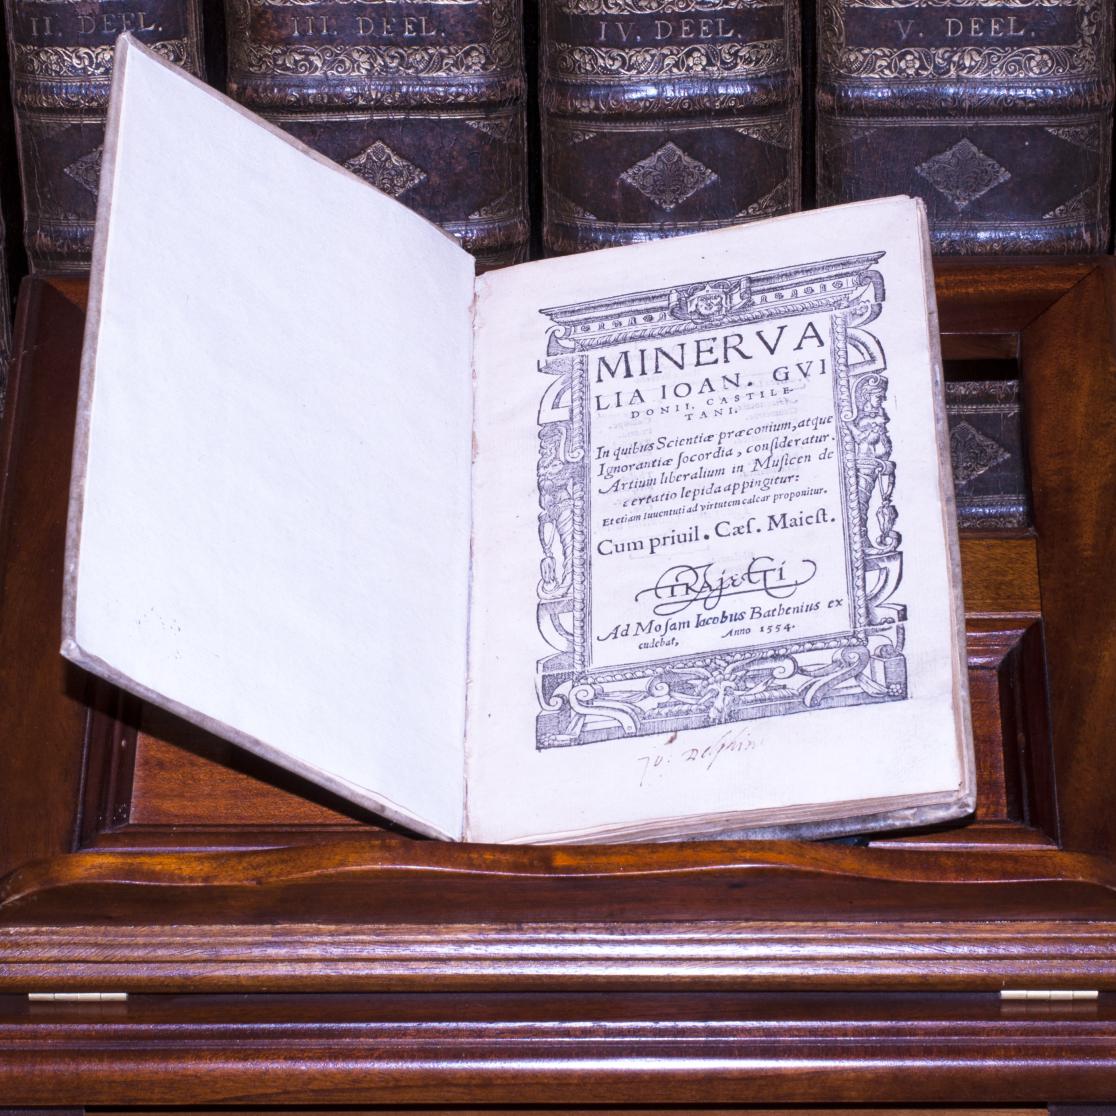 II. DEEL.
III. DEEL.
IV. DEEL.
V. DEEL.
MINERVA
LIA IOAN. GVI
DONII, CASTILE-
TANI.
In quibus Scientiæ præconium, atque
Ignorantiæ ſocordia, conſideratur.
Artium liberalium in Muſicen de
certatio lepida appingitur:
Et etiam Iuuentuti ad virtutem calcar proponitur.
Cum priuil. Cæſ. Maieſt.
TRAJECTI
Ad Moſam Iacobus Bathenius ex
cudebat, Anno 1554.
Delphin